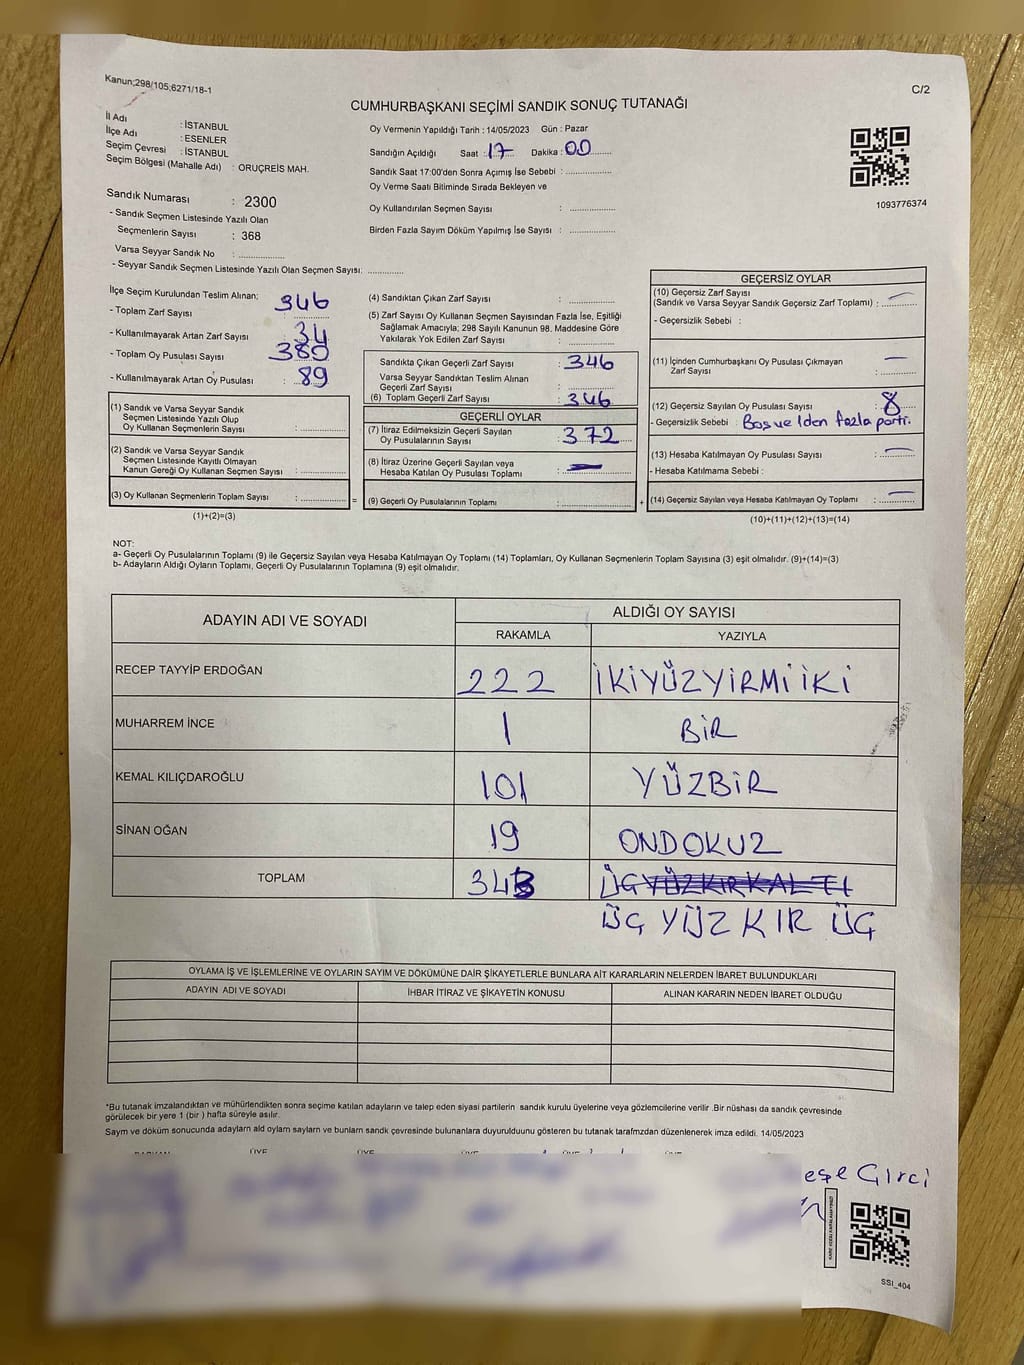 Kanun;298/105;6271/18-1
C/2
CUMHURBAŞKANI SEÇİMİ SANDIK SONUÇ TUTANAĞI
İl Adı : İSTANBUL
İlçe Adı : ESENLER
Seçim Çevresi : İSTANBUL
Seçim Bölgesi (Mahalle Adı) : ORUÇREİS MAH.
Oy Vermenin Yapıldığı Tarih : 14/05/2023 Gün : Pazar
Sandığın Açıldığı Saat : 17 Dakika : 00
Sandık Saat 17:00'den Sonra Açımış İse Sebebi :
Oy Verme Saati Bitiminde Sırada Bekleyen ve
Oy Kullandırılan Seçmen Sayısı :
Birden Fazla Sayım Döküm Yapılmış İse Sayısı :
1093776374
Sandık Numarası : 2300
- Sandık Seçmen Listesinde Yazılı Olan
Seçmenlerin Sayısı : 368
Varsa Seyyar Sandık No :
- Seyyar Sandık Seçmen Listesinde Yazılı Olan Seçmen Sayısı:
İlçe Seçim Kurulundan Teslim Alınan;
- Toplam Zarf Sayısı : 346
- Kullanılmayarak Artan Zarf Sayısı 34
- Toplam Oy Pusulası Sayısı 380
- Kullanılmayarak Artan Oy Pusulası : 89
(1) Sandık ve Varsa Seyyar Sandık
Seçmen Listesinde Yazılı Olup
Oy Kullanan Seçmenlerin Sayısı :
(2) Sandık ve Varsa Seyyar Sandık
Seçmen Listesinde Kayıtlı Olmayan
Kanun Gereği Oy Kullanan Seçmen Sayısı :
(3) Oy Kullanan Seçmenlerin Toplam Sayısı : =
(1)+(2)=(3)
(4) Sandıktan Çıkan Zarf Sayısı :
(5) Zarf Sayısı Oy Kullanan Seçmen Sayısından Fazla İse, Eşitliği
Sağlamak Amacıyla; 298 Sayılı Kanunun 98. Maddesine Göre
Yakılarak Yok Edilen Zarf Sayısı :
Sandıkta Çıkan Geçerli Zarf Sayısı : 346
Varsa Seyyar Sandıktan Teslim Alınan
Geçerli Zarf Sayısı :
(6) Toplam Geçerli Zarf Sayısı : 346
GEÇERLİ OYLAR
(7) İtiraz Edilmeksizin Geçerli Sayılan
Oy Pusulalarının Sayısı : 372
(8) İtiraz Üzerine Geçerli Sayılan veya
Hesaba Katılan Oy Pusulası Toplamı : —
(9) Geçerli Oy Pusulalarının Toplamı : +
GEÇERSİZ OYLAR
(10) Geçersiz Zarf Sayısı
(Sandık ve Varsa Seyyar Sandık Geçersiz Zarf Toplamı) : —
- Geçersizlik Sebebi :
(11) İçinden Cumhurbaşkanı Oy Pusulası Çıkmayan
Zarf Sayısı : —
(12) Geçersiz Sayılan Oy Pusulası Sayısı : 8
- Geçersizlik Sebebi : Boş ve 1den fazla parti.
(13) Hesaba Katılmayan Oy Pusulası Sayısı : —
- Hesaba Katılmama Sebebi :
(14) Geçersiz Sayılan veya Hesaba Katılmayan Oy Toplamı : —
(10)+(11)+(12)+(13)=(14)
NOT:
a- Geçerli Oy Pusulalarının Toplamı (9) ile Geçersiz Sayılan veya Hesaba Katılmayan Oy Toplamı (14) Toplamları, Oy Kullanan Seçmenlerin Toplam Sayısına (3) eşit olmalıdır. (9)+(14)=(3)
b- Adayların Aldığı Oyların Toplamı, Geçerli Oy Pusulalarının Toplamına (9) eşit olmalıdır.
ADAYIN ADI VE SOYADI ALDIĞI OY SAYISI
RAKAMLA YAZIYLA
RECEP TAYYİP ERDOĞAN 222 İKİYÜZYİRMİİKİ
MUHARREM İNCE 1 BİR
KEMAL KILIÇDAROĞLU 101 YÜZBİR
SİNAN OĞAN 19 ONDOKUZ
TOPLAM 343 ÜÇYÜZKIRKALTI
ÜÇ YÜZ KIR ÜÇ
OYLAMA İŞ VE İŞLEMLERİNE VE OYLARIN SAYIM VE DÖKÜMÜNE DAİR ŞİKAYETLERLE BUNLARA AİT KARARLARIN NELERDEN İBARET BULUNDUKLARI
ADAYIN ADI VE SOYADI İHBAR İTİRAZ VE ŞİKAYETİN KONUSU ALINAN KARARIN NEDEN İBARET OLDUĞU
*Bu tutanak imzalandıktan ve mühürlendikten sonra seçime katılan adayların ve talep eden siyasi partilerin sandık kurulu üyelerine veya gözlemcilerine verilir .Bir nüshası da sandık çevresinde
görülecek bir yere 1 (bir ) hafta süreyle asılır.
Saym ve döküm sonucunda adaylarn ald oylam saylarn ve bunlarn sandk çevresinde bulunanlara duyurulduunu gösteren bu tutanak tarafmzdan düzenlenerek imza edildi. 14/05/2023
eşe Girci
SSI_404